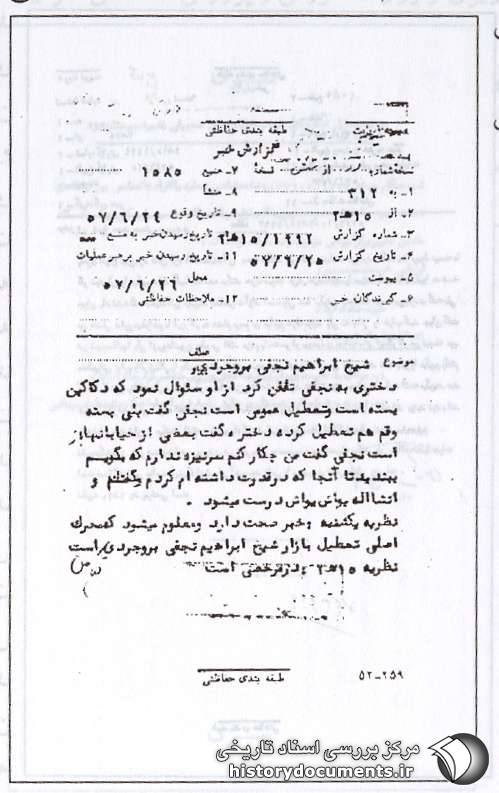 طبقه بندی حفاظتی
گزارش خبر
نسخه شماره از نسخه ۷- منبع ۱۵۸۵
۱- به ۳۱۲ ۸- منشأ
۲- از ۱۵هـ۲ ۹- تاریخ وقوع ۵۷/۶/۲۴
۳- شماره گزارش ۱۵/۱۹۹۲هـ۲ ۱۰- تاریخ رسیدن خبر به منبع
۴- تاریخ گزارش ۵۷/۶/۲۵ ۱۱- تاریخ رسیدن خبر برهبر عملیات
۵- پیوست محل ۵۷/۶/۲۶
۶- گیرندگان خبر ۱۲- ملاحظات حفاظتی
موضوع شیخ ابراهیم نجفی بروجردی
دختری به نجفی تلفن کرد. از او سئوال نمود که دکاکین
بسته است وتعطیل عمومی است نجفی گفت بلی بسته
وقم هم تعطیل کرده دختره گفت بعضی از خیابانها باز
است نجفی گفت من چکار کنم سرنیزه ندارم که بگویم
ببندید تا آنجا که درقدرت داشته ام کردم وگفتم و
انشااله یواش یواش درست میشود.
نظریه یکشنبه: خبر صحت دارد ومعلوم میشود که محرک
اصلی تعطیل بازار شیخ ابراهیم نجفی بروجردی است
نظریه ۱۵هـ۲: درمرخصی است
طبقه بندی حفاظتی
۵۲-۲۵۹
مرکز بررسی اسناد تاریخی
historydocuments.ir